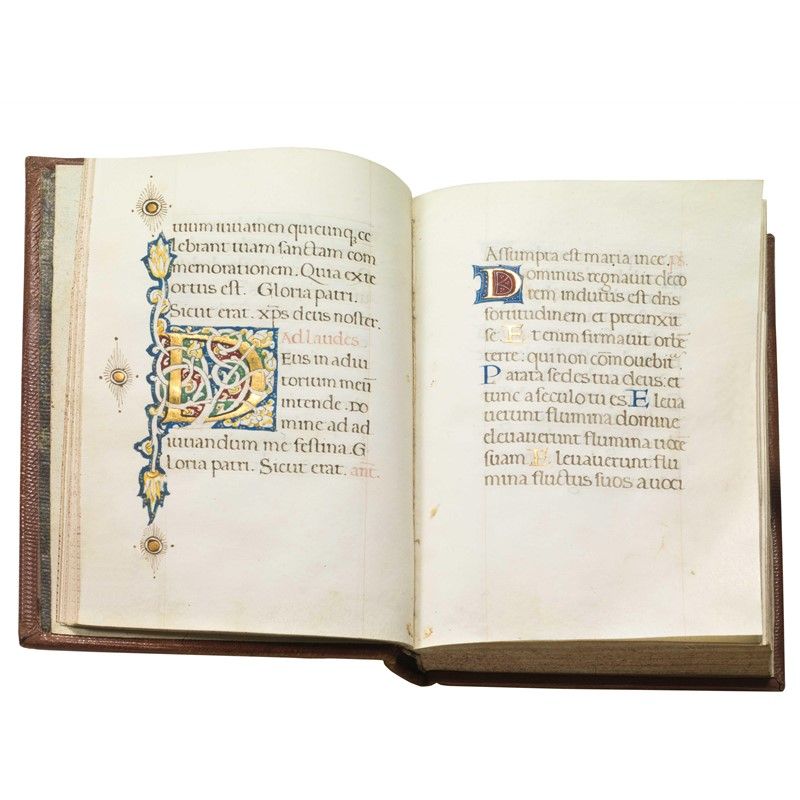 tuum iuuamen quicunq; ce
lebrant tuam sanctam com
memorationem. Quia exie
ortus est. Gloria patri.
Sicut erat. xp̄s deus noster.
Ad laudes.
DEus in adiu
torium meū
intende. Do
mine ad ad
iuuandum me festina. G
loria patri. Sicut erat. ant̄.
Assumpta est maria in ce. ps̄.
Dominus regnauit deco
rem indutus est dn̄s
fortitudinem et precinxit
se. Etenim firmauit orbē
terre: qui non cōmouebit̄.
Parata sedes tua deus: et
tunc a seculo tu es. Eleua
uerunt flumina domine
eleuauerunt flumina uoce
suam Eleuauerunt flu
mina fluctus suos a uoci